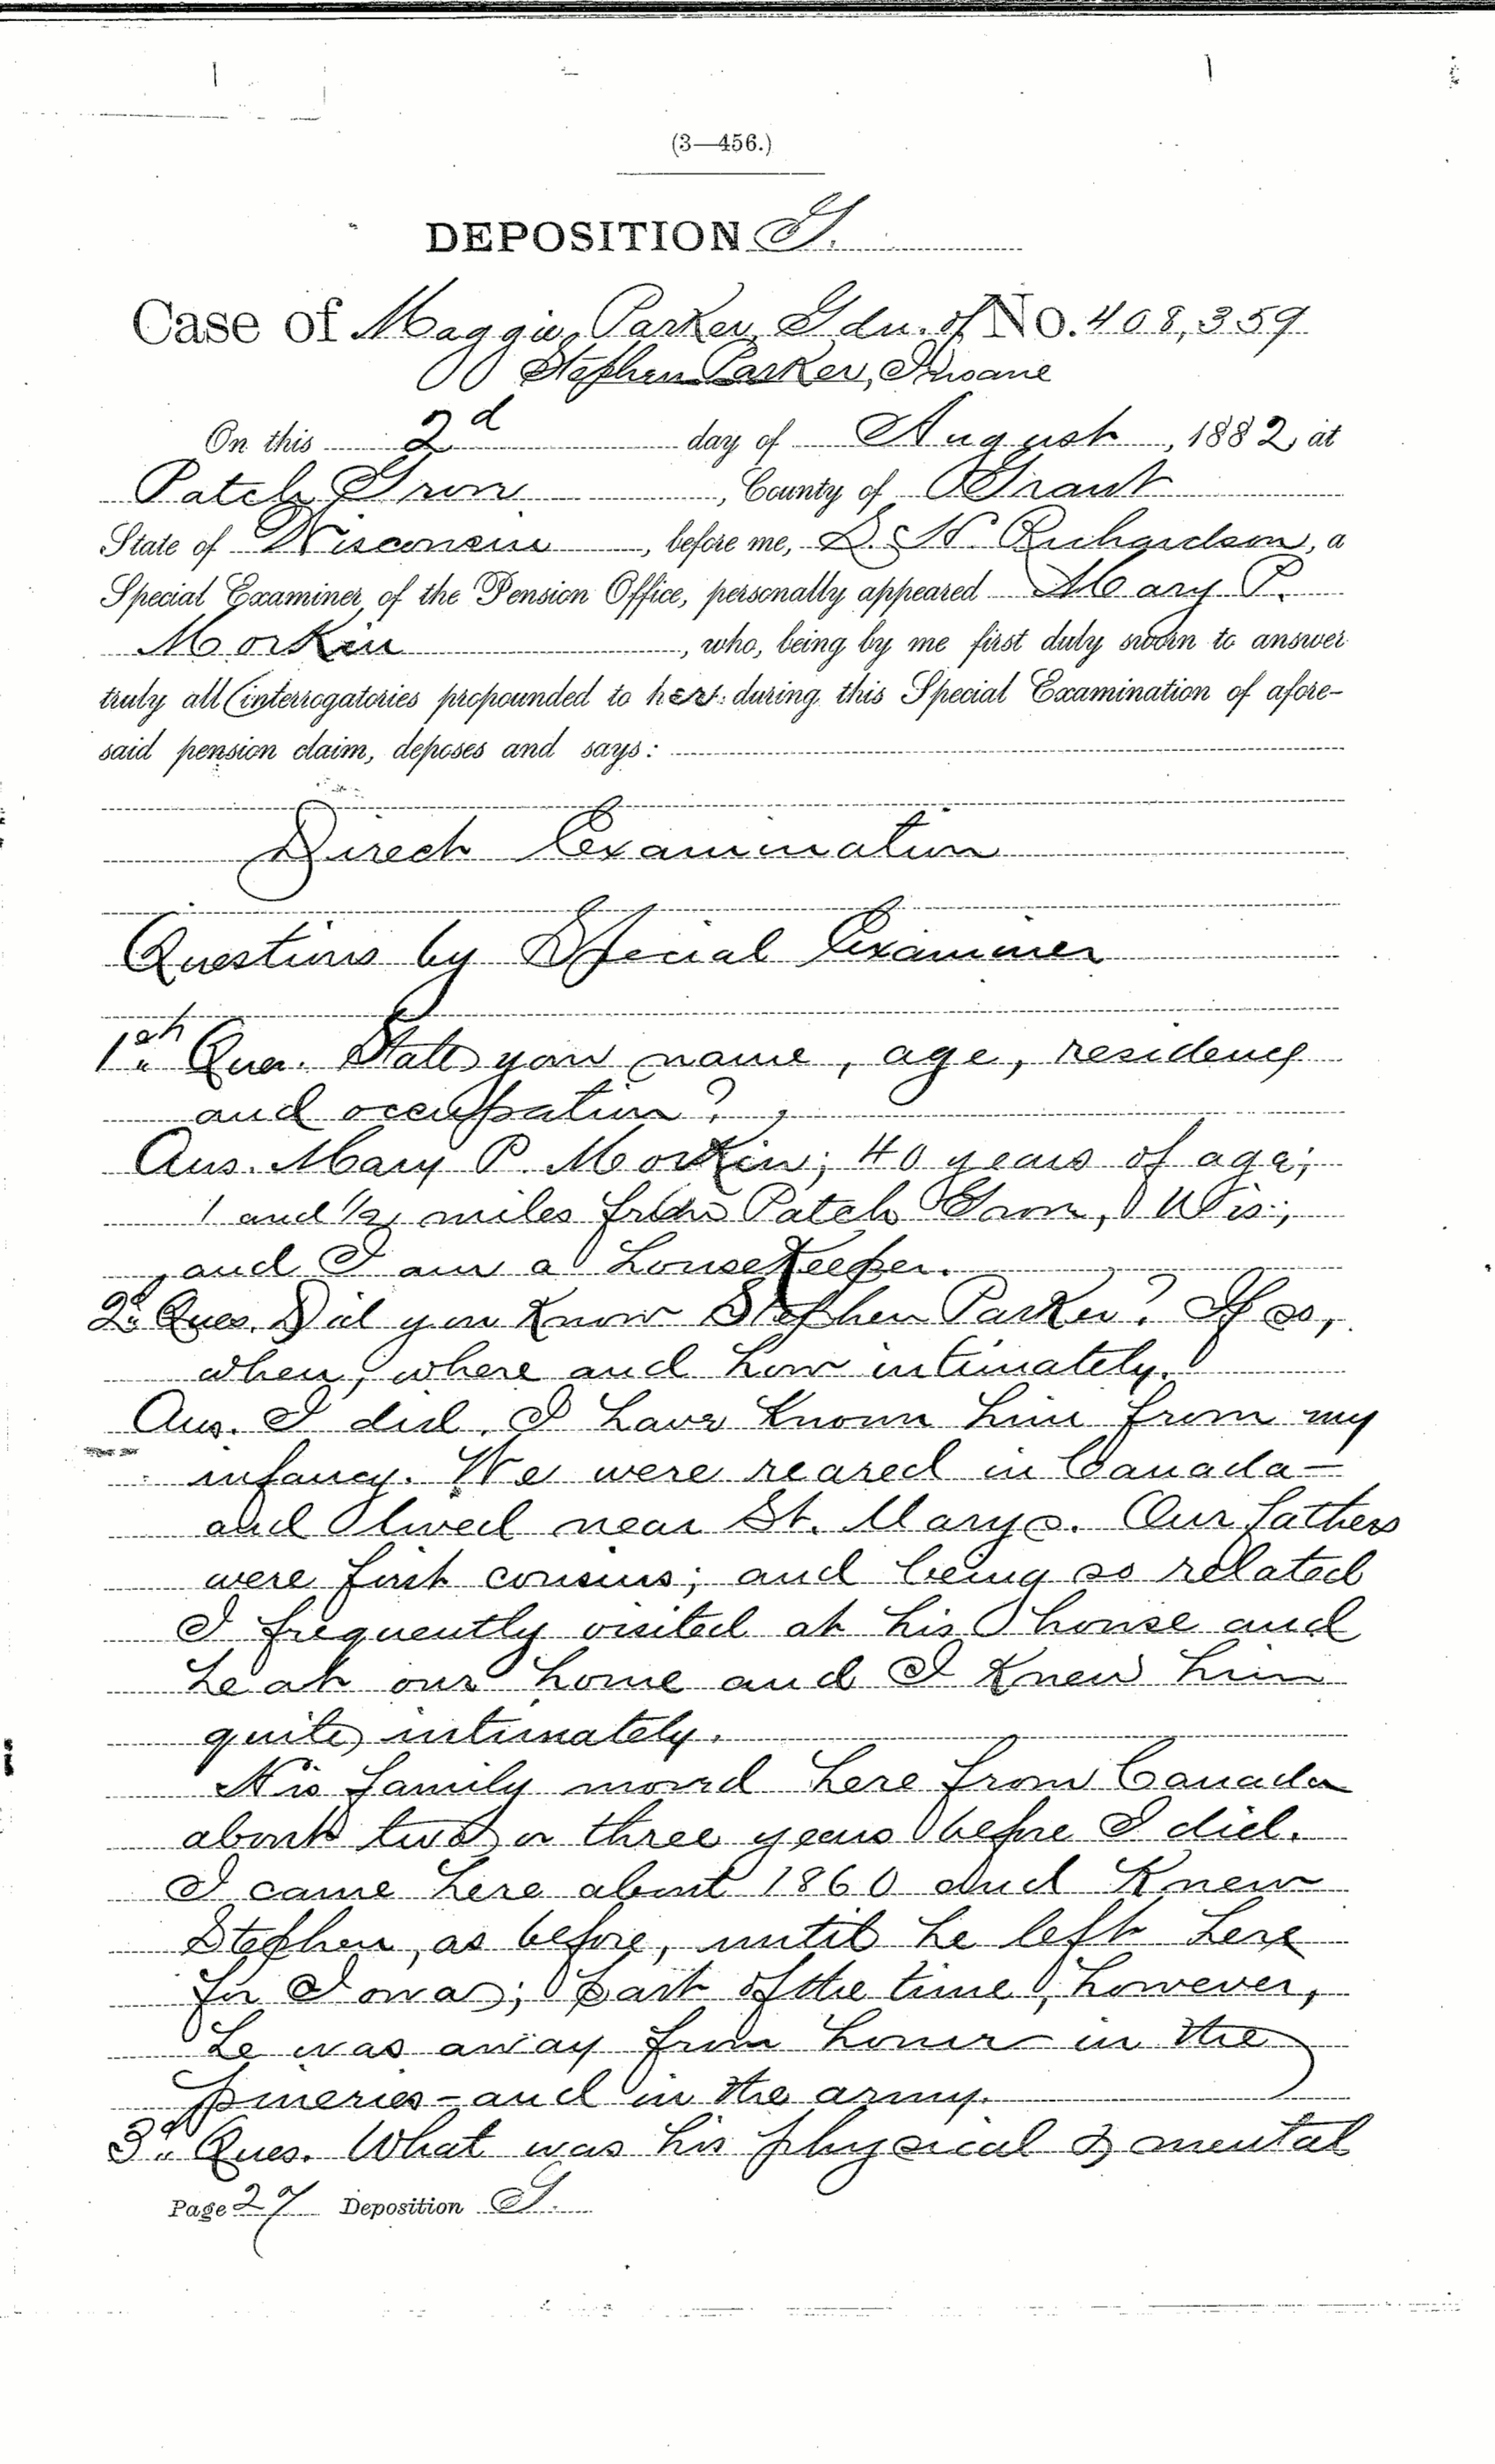 (3—456.)
DEPOSITION G.
Case of Maggie Parker, Gdn. of No. 408,359
Stephen Parker, Insane
On this 2d day of August, 1882, at
Patch Grove, County of Grant
State of Wisconsin, before me, D. H. Richardson, a
Special Examiner of the Pension Office, personally appeared Mary P.
Morkin, who, being by me first duly sworn to answer
truly all interrogatories propounded to her during this Special Examination of afore-
said pension claim, deposes and says:
Direct Examination
Questions by Special Examiner
1st. Ques. State your name, age, residence
and occupation?
Ans. Mary P. Morkin; 40 years of age;
1 and 1/2 miles from Patch Grove, Wis.;
and I am a housekeeper.
2d. Ques. Did you know Stephen Parker? If so,
when, where and how intimately.
Ans. I did. I have known him from my
infancy. We were reared in Canada—
and lived near St. Marys. Our fathers
were first cousins; and being so related
I frequently visited at his house and
he at our home and I knew him
quite intimately.
His family moved here from Canada
about two or three years before I did.
I came here about 1860 and knew
Stephen, as before, until he left here
for Iowa; part of the time, however,
he was away from home in the
pineries—and in the army.
3d. Ques. What was his physical & mental
Page 27 Deposition G.